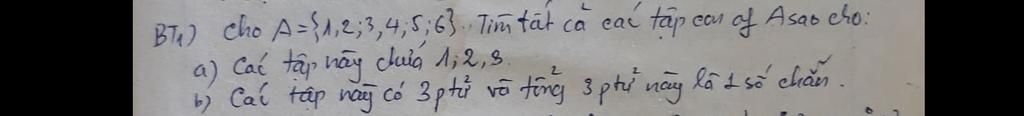 BT1) Cho A = {1,2;3,4;5;6}. Tìm tất cả các tập con of A sao cho:
a) Các tập này chứa 1;2,3.
b) Các tập này có 3 ptử và tổng 3 ptử này là 1 số chẵn.